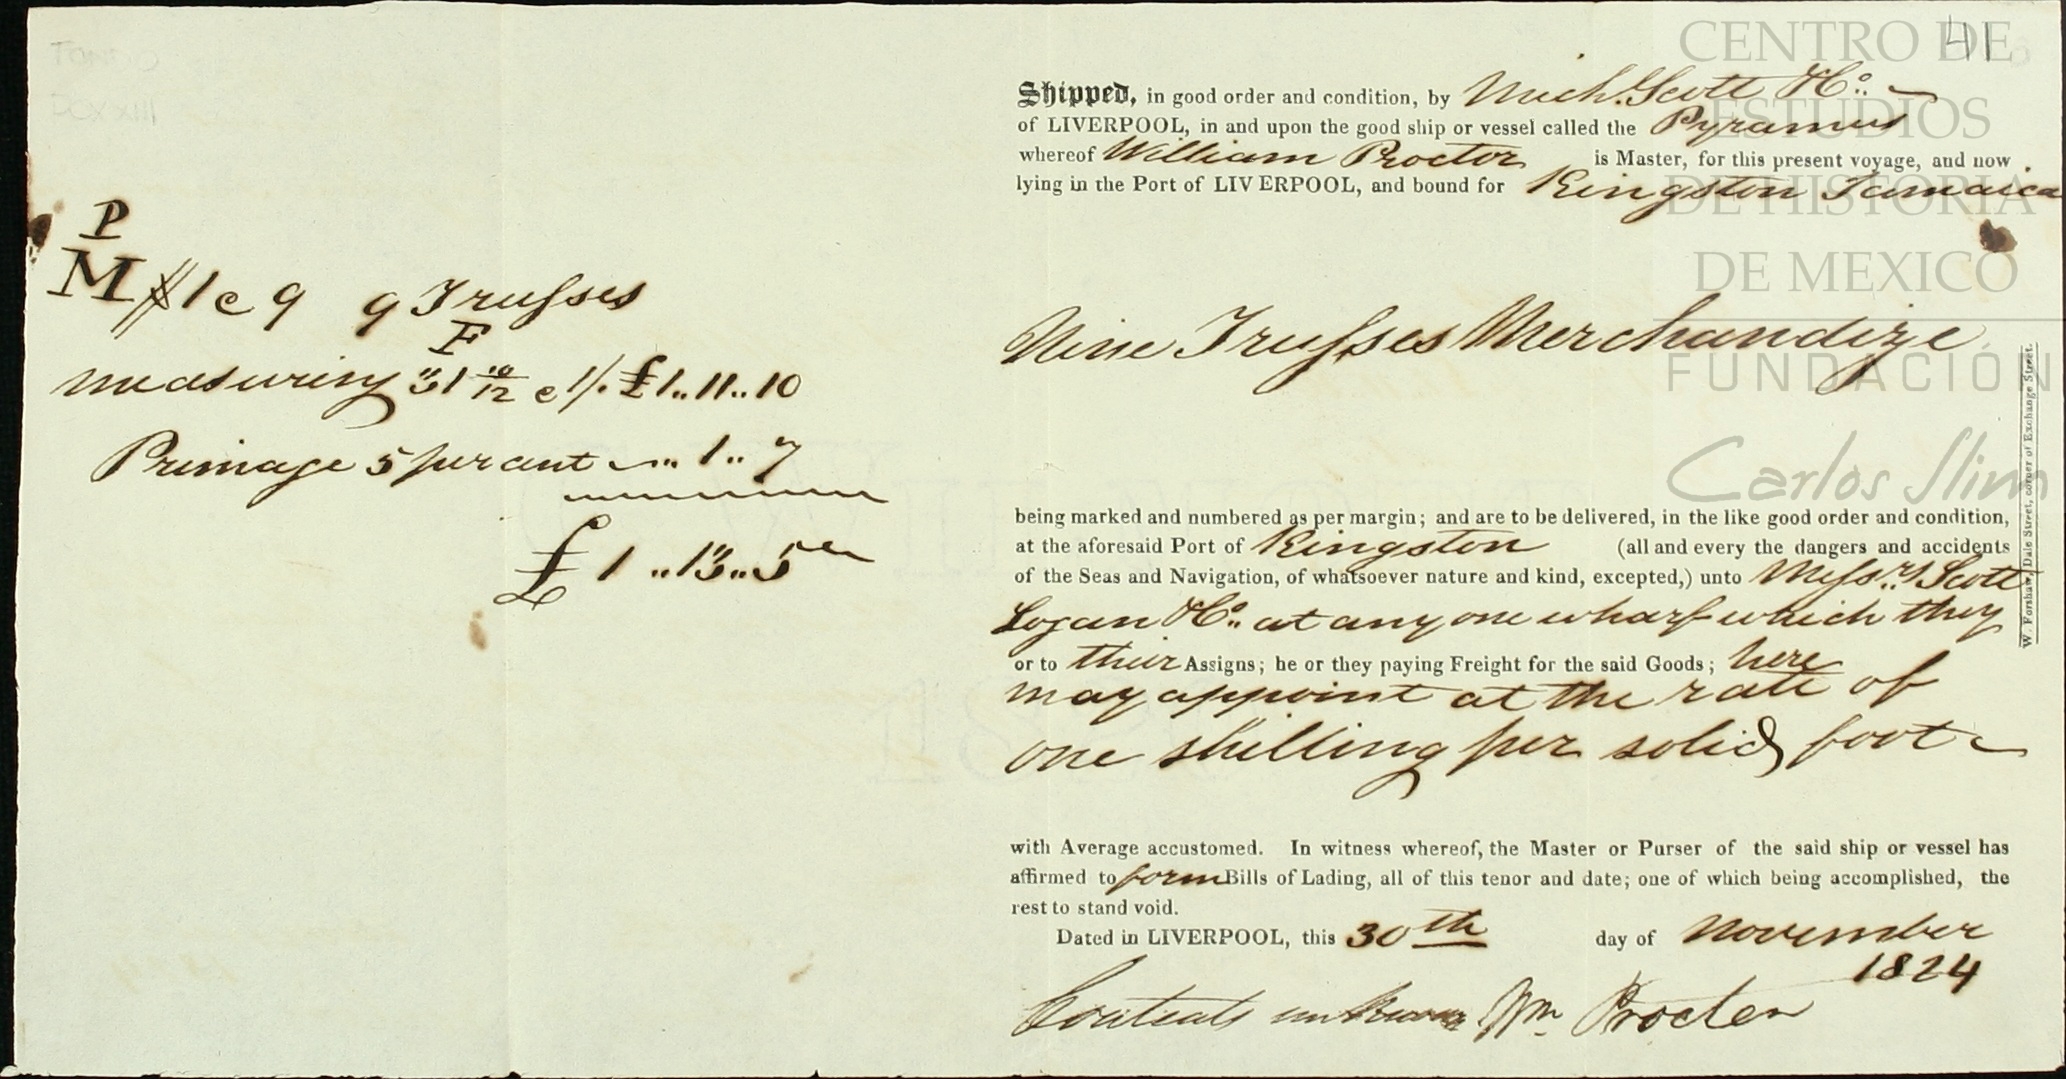 41
CENTRO DE
ESTUDIOS
DE HISTORIA
DE MEXICO
FUNDACIÓN
Carlos Slim
FONDO
DCXXIII
P
M
1 @ 9 9 Trusses
F
measuring 31 10/12 @ 1/. £1..11..10
Primage 5 per cent ~ .. 1.. 7
£ 1 ..13..5
Shipped, in good order and condition, by Mich. Scott & Co.
of LIVERPOOL, in and upon the good ship or vessel called the Pyramus
whereof William Proctor is Master, for this present voyage, and now
lying in the Port of LIVERPOOL, and bound for Kingston Jamaica
Nine Trusses Merchandize
being marked and numbered as per margin; and are to be delivered, in the like good order and condition,
at the aforesaid Port of Kingston (all and every the dangers and accidents
of the Seas and Navigation, of whatsoever nature and kind, excepted,) unto Messrs Scott
Logan & Co. at any one wharf which they
or to their Assigns; he or they paying Freight for the said Goods; here
may appoint at the rate of
one shilling per solid foot
with Average accustomed. In witness whereof, the Master or Purser of the said ship or vessel has
affirmed to form Bills of Lading, all of this tenor and date; one of which being accomplished, the
rest to stand void.
Dated in LIVERPOOL, this 30th day of November
1824
Contents unknown Wm Procter
W. Forshaw, Dale Street, corner of Exchange Street.